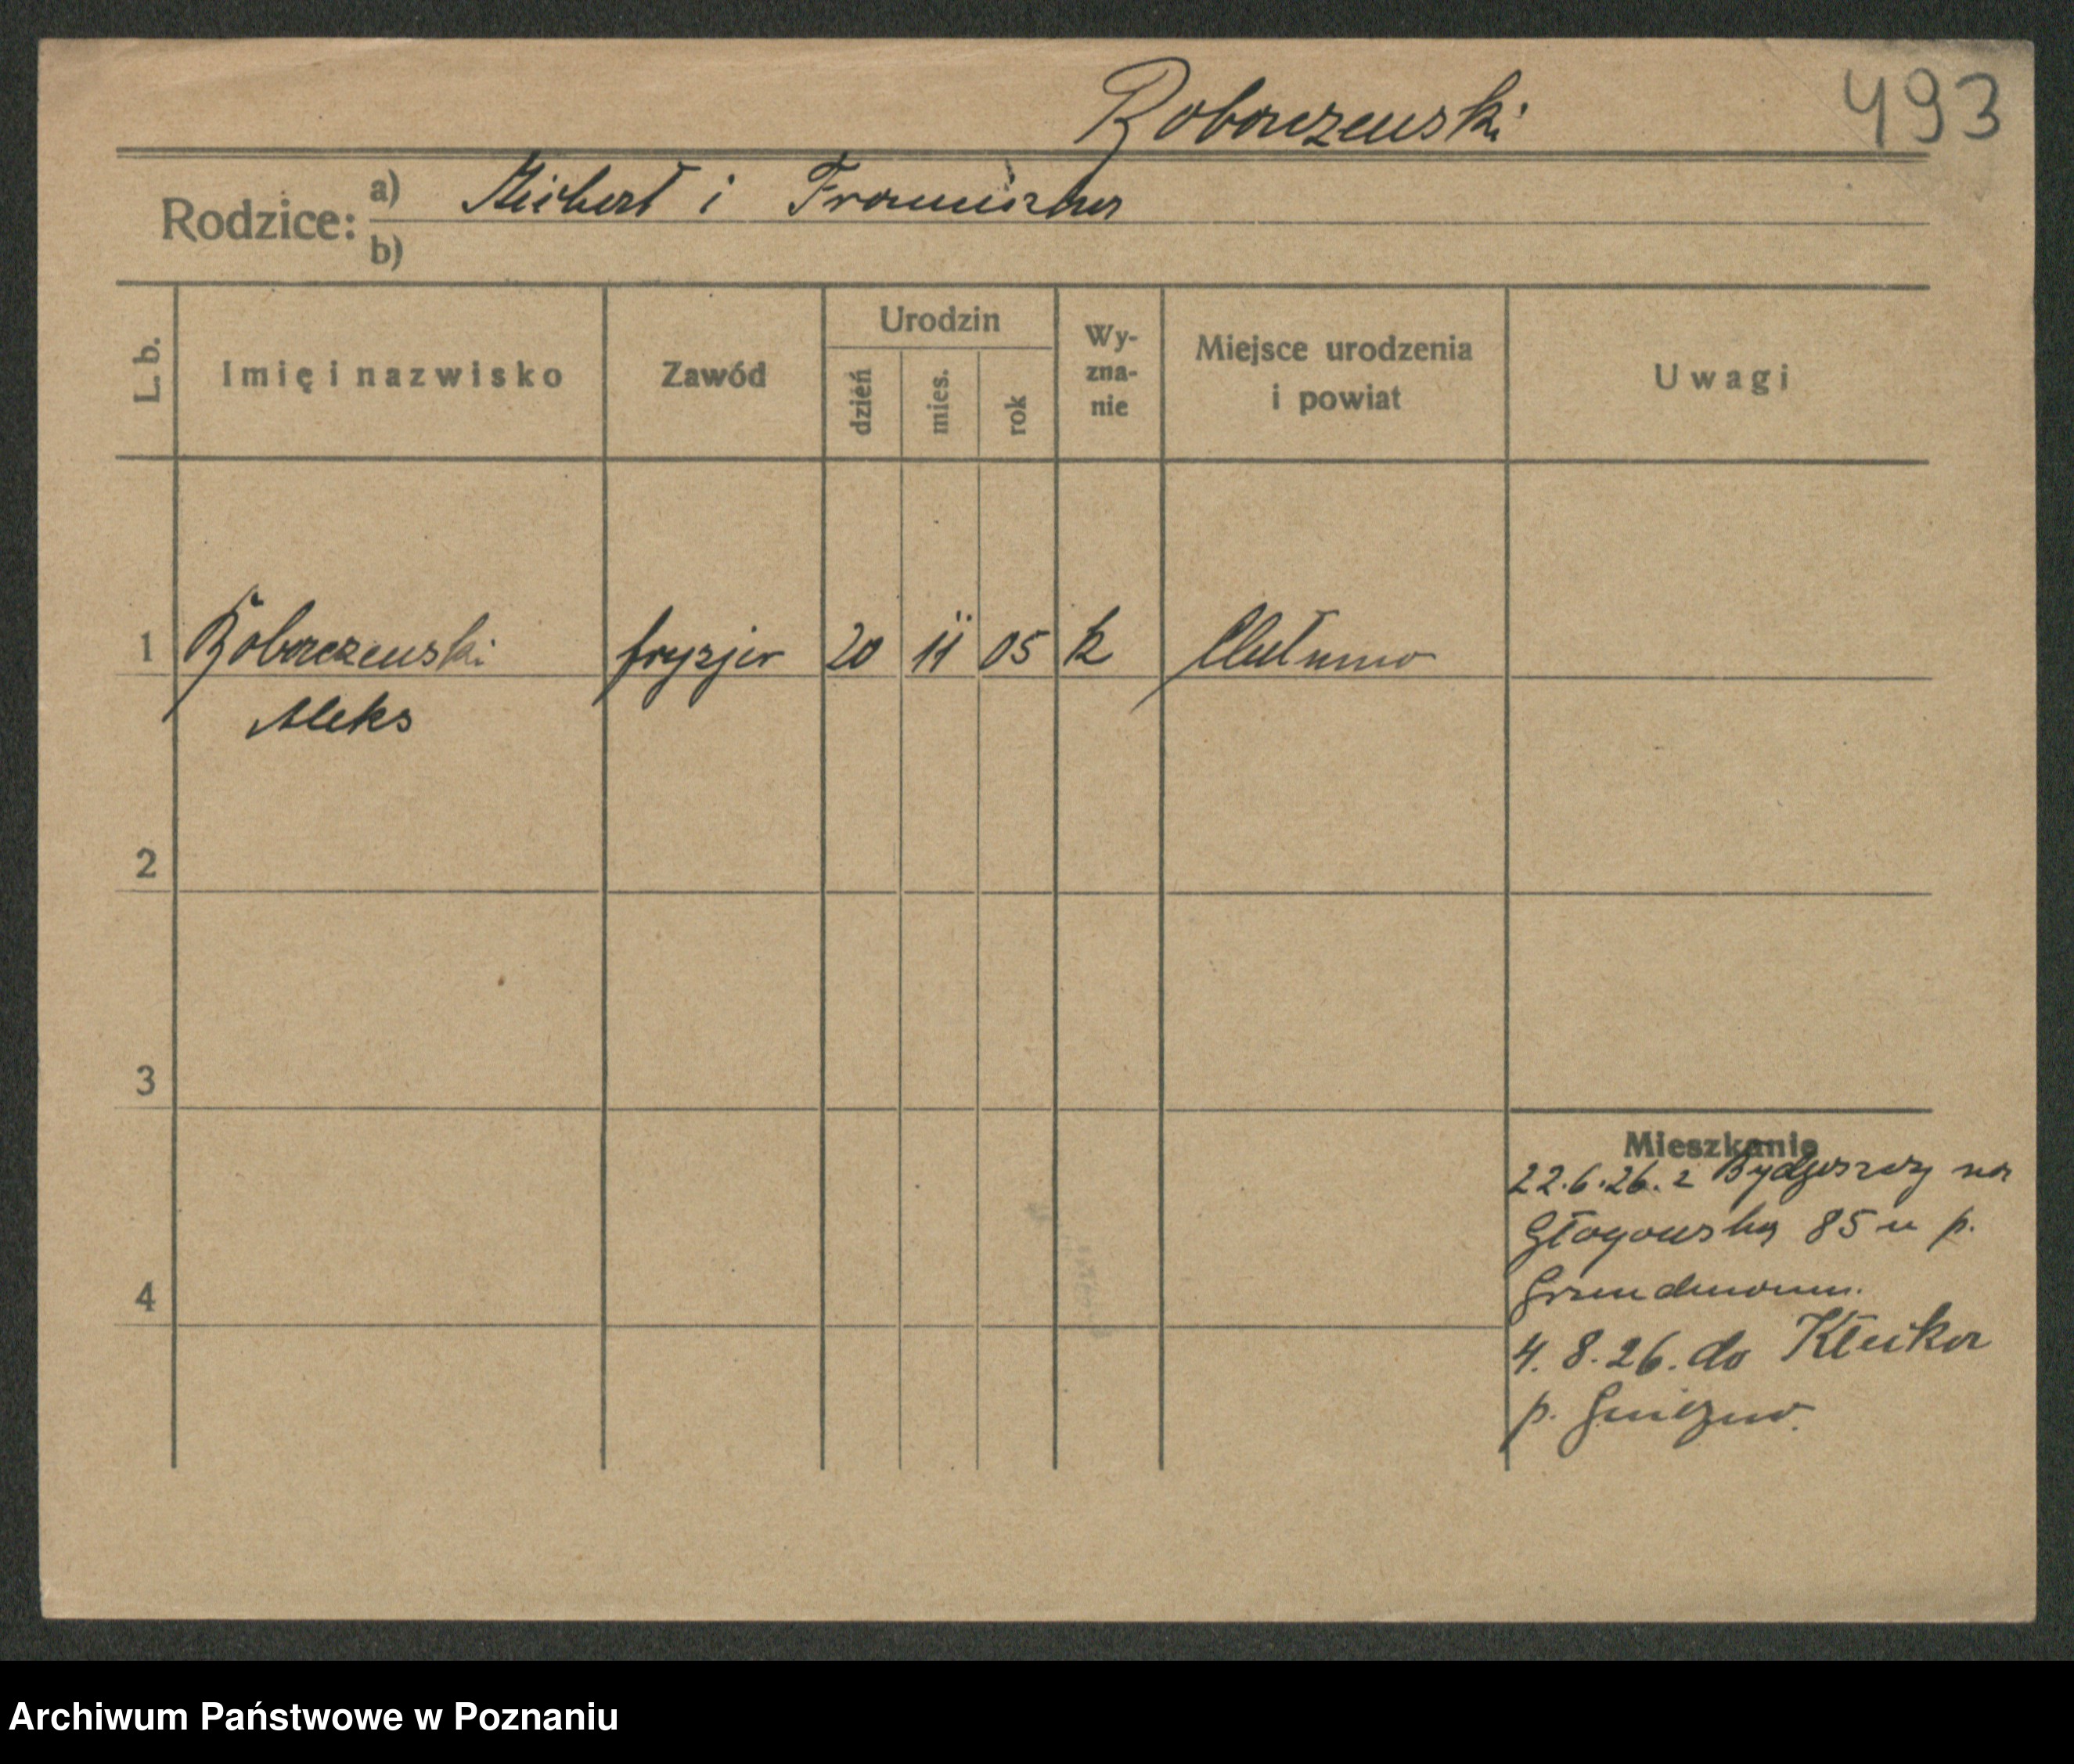 Boborczewski
493
Rodzice: a) Michał i Franciszka
b)
L. b.
Imię i nazwisko
Zawód
Urodzin
dzień
mies.
rok
Wy-
zna-
nie
Miejsce urodzenia
i powiat
Uwagi
1 fryzjer 20 11 05 k
Aleks
2
3
4
Mieszkanie
22.6.26. z Bydgoszczy na
Głogowska 85 u p.
4. 8. 26. do Kłecka
p. Gniezno.
Archiwum Państwowe w Poznaniu